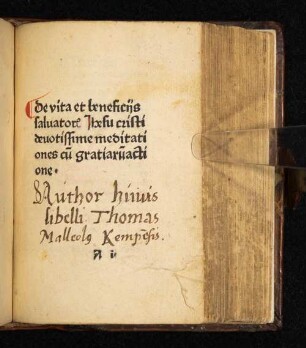 De vita et beneficijs
saluatorẽ Jhesu cristi
deuotissime meditati
ones cũ gratiarũacti
one.
Author huius
libelli Thomas
Malleolg Kempẽsis.
A i